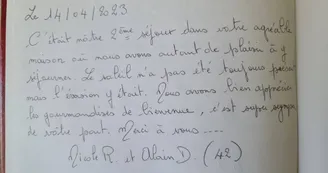 Le 14/04/2023
C'était nôtre 2ème séjour dans votre agréable
maison où nous avons autant de plaisir à y
séjourner. Le soleil n'a pas été toujours présent
mais l'évasion y était. Nous avons bien apprécié
les gourmandises de bienvenue, c'est super sympa
de vôtre part. Merci à vous ....
Nicole R. et Alain D. (42)